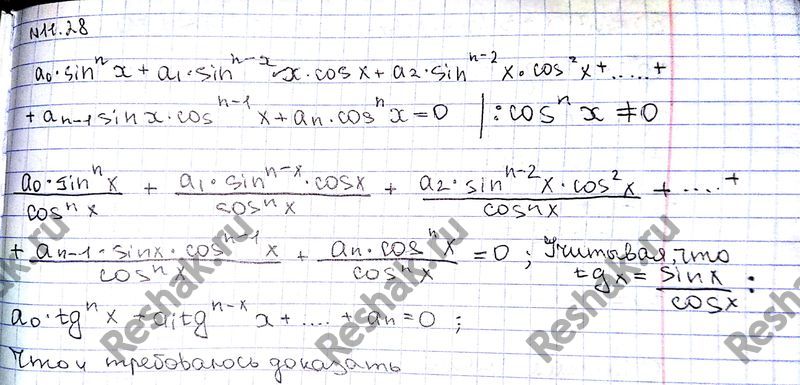 №11.28
a₀·sinⁿx + a₁·sinⁿ⁻ˣx·cosx + a₂·sinⁿ⁻²x·cos²x+.....+
+ aₙ₋₁sinx·cosⁿ⁻¹x + aₙ·cosⁿx = 0 |:cosⁿx ≠ 0
a₀·sinⁿx/cosⁿx + a₁·sinⁿ⁻ˣ·cosx/cosⁿx + a₂·sinⁿ⁻²x·cos²x/cosⁿx + ....+
+ aₙ₋₁·sinx·cosⁿ⁻¹x/cosⁿx + aₙ·cosⁿx/cosⁿx = 0 ; Учитывая, что
tgx = sinx/cosx :
a₀·tgⁿx + a₁tgⁿ⁻ˣx + .... + aₙ = 0 ;
Что и требовалось доказать
Reshak.ru
Reshak.ru
Reshak.ru
Reshak.ru